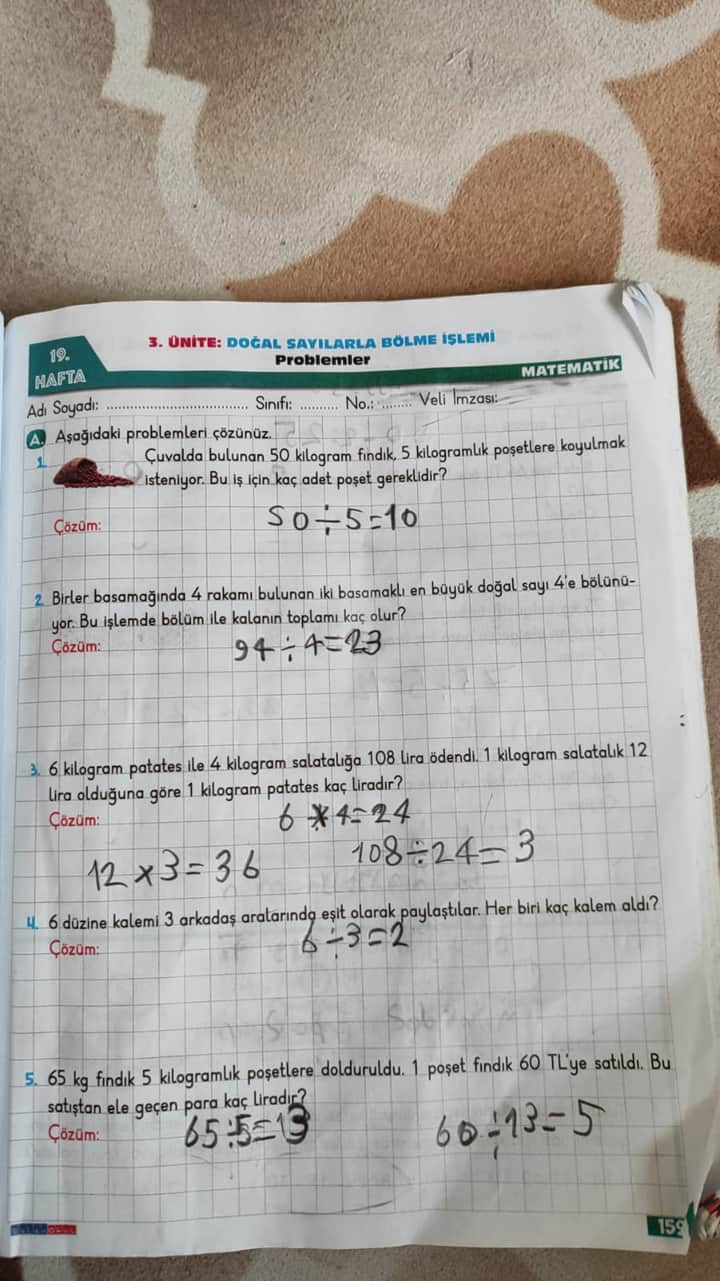 19.
HAFTA
3. ÜNİTE: DOĞAL SAYILARLA BÖLME İŞLEMİ
Problemler
MATEMATİK
Adı Soyadı: .................................. Sınıfı: .......... No.: ........ Veli İmzası:
A. Aşağıdaki problemleri çözünüz.
1. Çuvalda bulunan 50 kilogram fındık, 5 kilogramlık poşetlere koyulmak
isteniyor. Bu iş için kaç adet poşet gereklidir?
Çözüm: 50÷5=10
2. Birler basamağında 4 rakamı bulunan iki basamaklı en büyük doğal sayı 4'e bölünü-
yor. Bu işlemde bölüm ile kalanın toplamı kaç olur?
Çözüm: 94÷4=23
3. 6 kilogram patates ile 4 kilogram salatalığa 108 lira ödendi. 1 kilogram salatalık 12
lira olduğuna göre 1 kilogram patates kaç liradır?
Çözüm: 6 x 4=24
12 x 3 = 36 108÷24=3
4. 6 düzine kalemi 3 arkadaş aralarında eşit olarak paylaştılar. Her biri kaç kalem aldı?
Çözüm: 6÷3=2
5. 65 kg fındık 5 kilogramlık poşetlere dolduruldu. 1 poşet fındık 60 TL'ye satıldı. Bu
satıştan ele geçen para kaç liradır?
Çözüm: 65÷5=13 60÷13=5
159